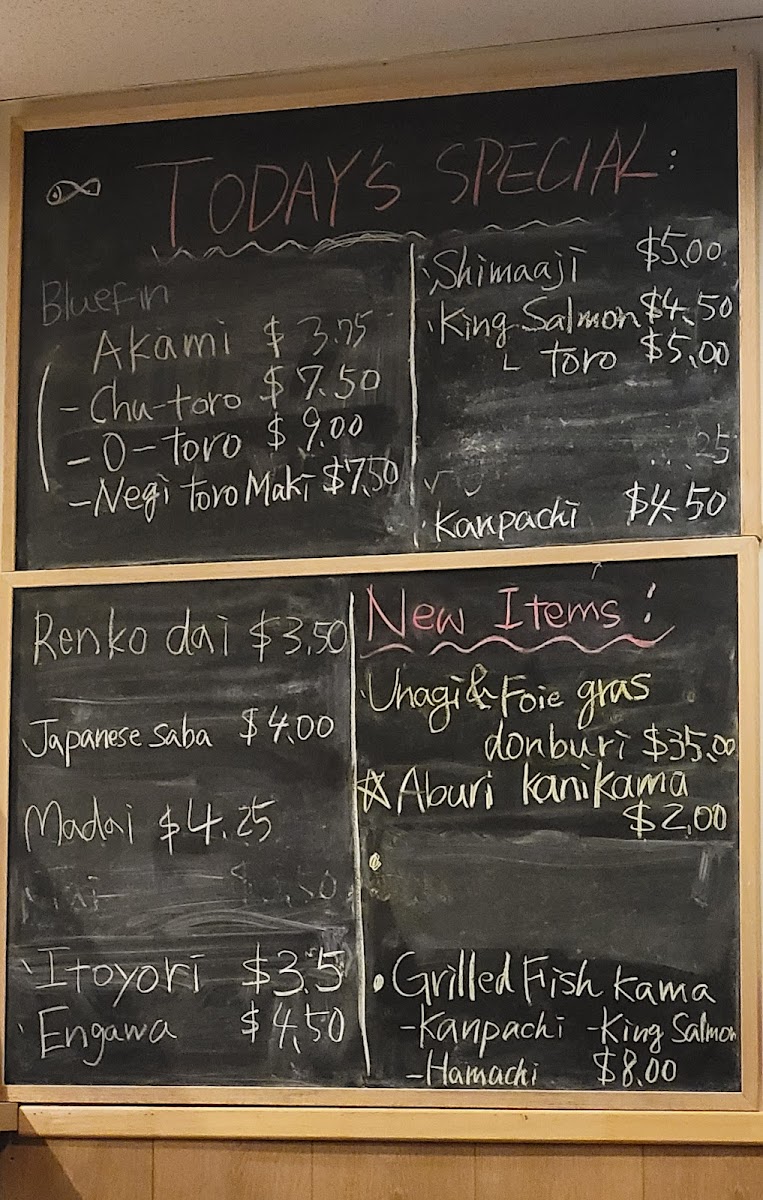 TODAY'S SPECIAL:
Bluefin
Akami $ 3.75
- Chu-toro $ 7.50
- O-toro $ 9.00
- Negi toro Maki $7.50
· Shimaaji $5.00
· King Salmon $4.50
└ toro $5.00
.25
· Kanpachi $4.50
Renko dai $3.50
Japanese saba $4.00
Madai $4.25
Itoyori $3.5
Engawa $4.50
New Items!
· Unagi & Foie gras
donburi $35.00
☆ Aburi kanikama
$2.00
•
• Grilled Fish kama
- Kanpachi - King Salmon
- Hamachi $8.00